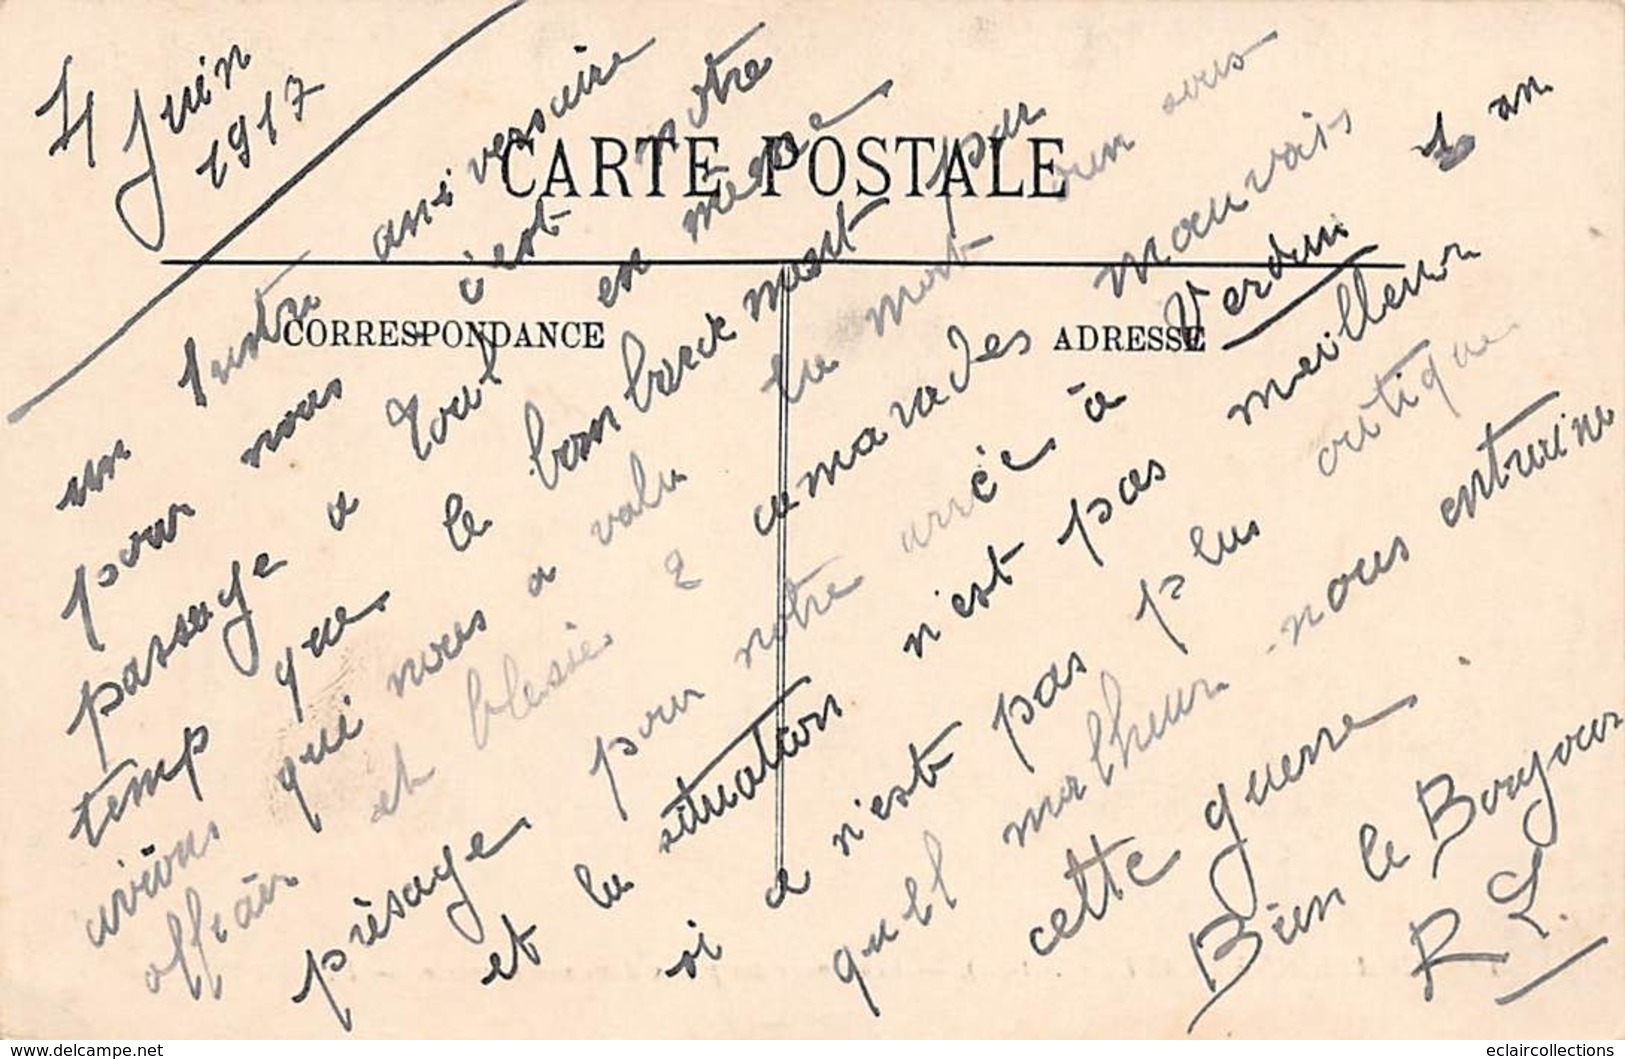 4 Juin
1917
CARTE POSTALE
CORRESPONDANCE
ADRESSE
un triste aniversaire
pour nous c'est notre
passage a Toul en même
temp que le bombardement par
avions qui nous a valu la mort d'un sous
officier et blessé 2 camarades mauvais
présage pour notre arrée à Verdun 1 an
et la situation n'est pas meilleur
si a n'est pas plus critique
quell malheur nous entraine
cette guerre
Bien le Bonjour
R L.
eclaircollections
www.delcampe.net